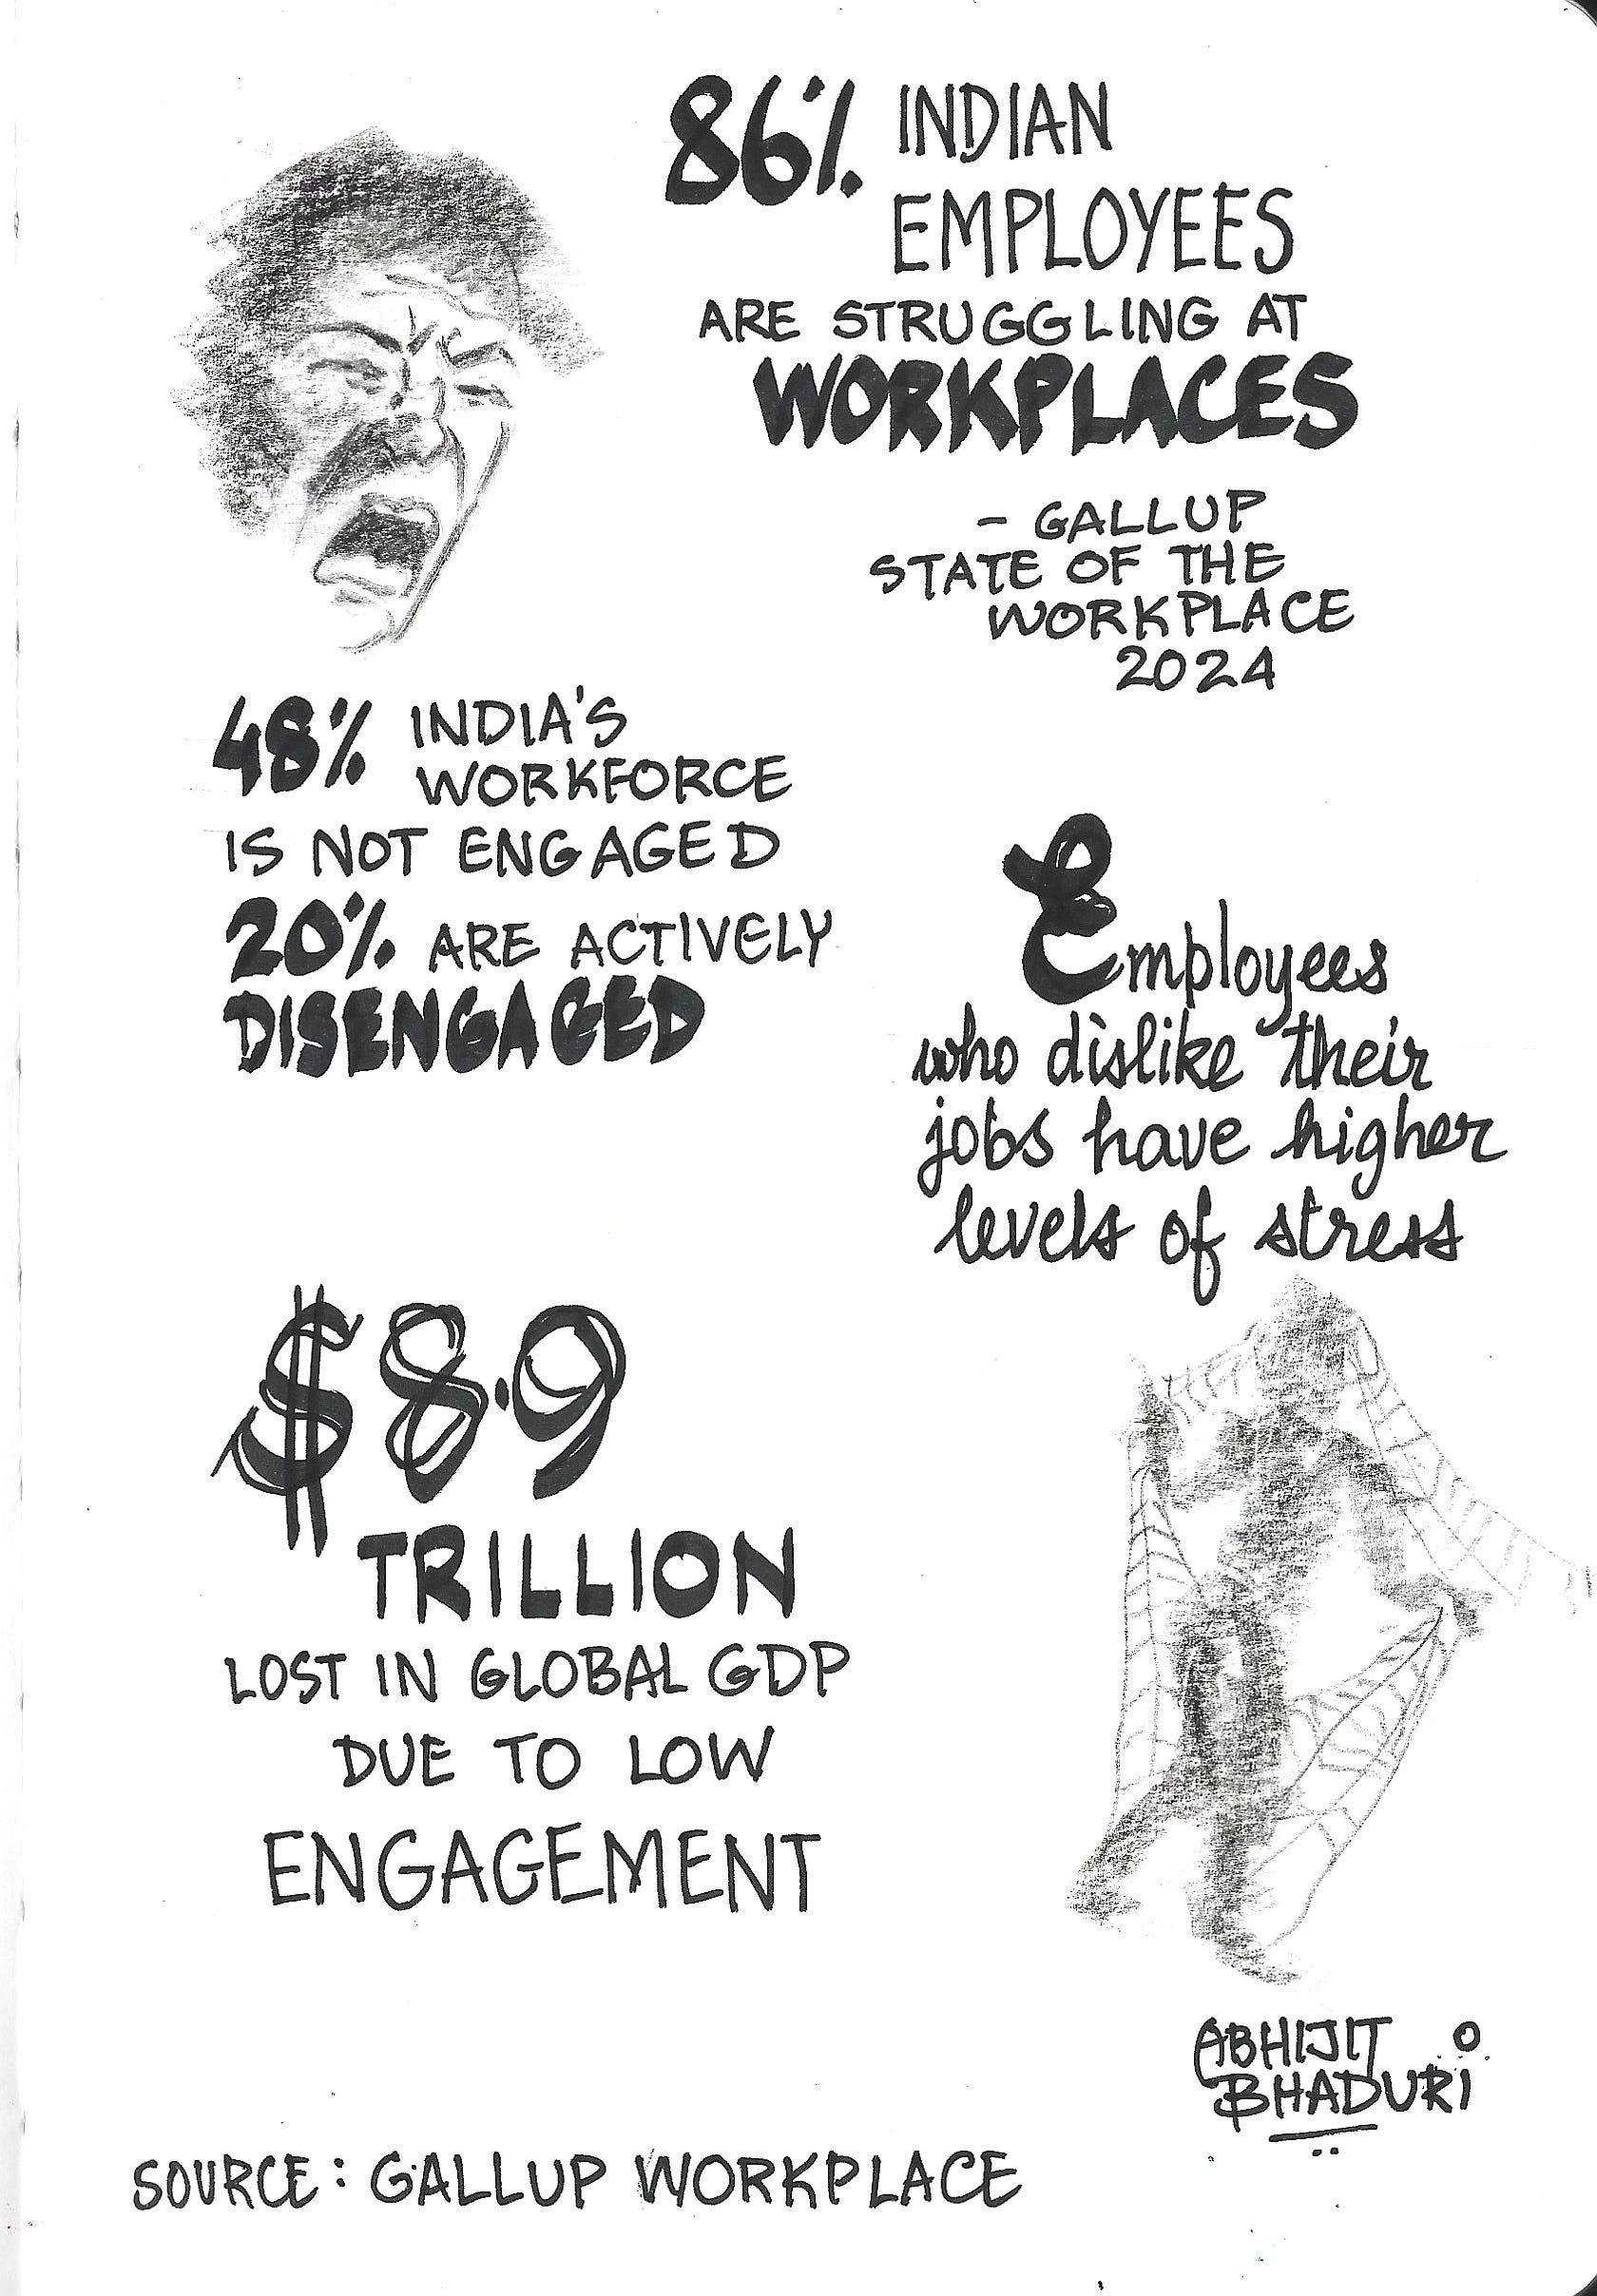 86% INDIAN
EMPLOYEES
ARE STRUGGLING AT
WORKPLACES
- GALLUP
STATE OF THE
WORKPLACE
2024
48% INDIA'S
WORKFORCE
IS NOT ENGAGED
20% ARE ACTIVELY
DISENGAGED
Employees
who dislike their
jobs have higher
levels of stress
$8.9
TRILLION
LOST IN GLOBAL GDP
DUE TO LOW
ENGAGEMENT
ABHIJIT
BHADURI
SOURCE: GALLUP WORKPLACE